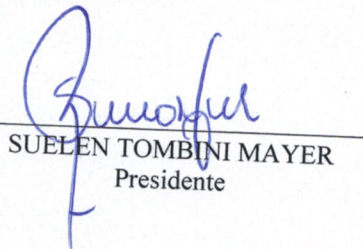 SUELEN TOMBINI MAYER
Presidente